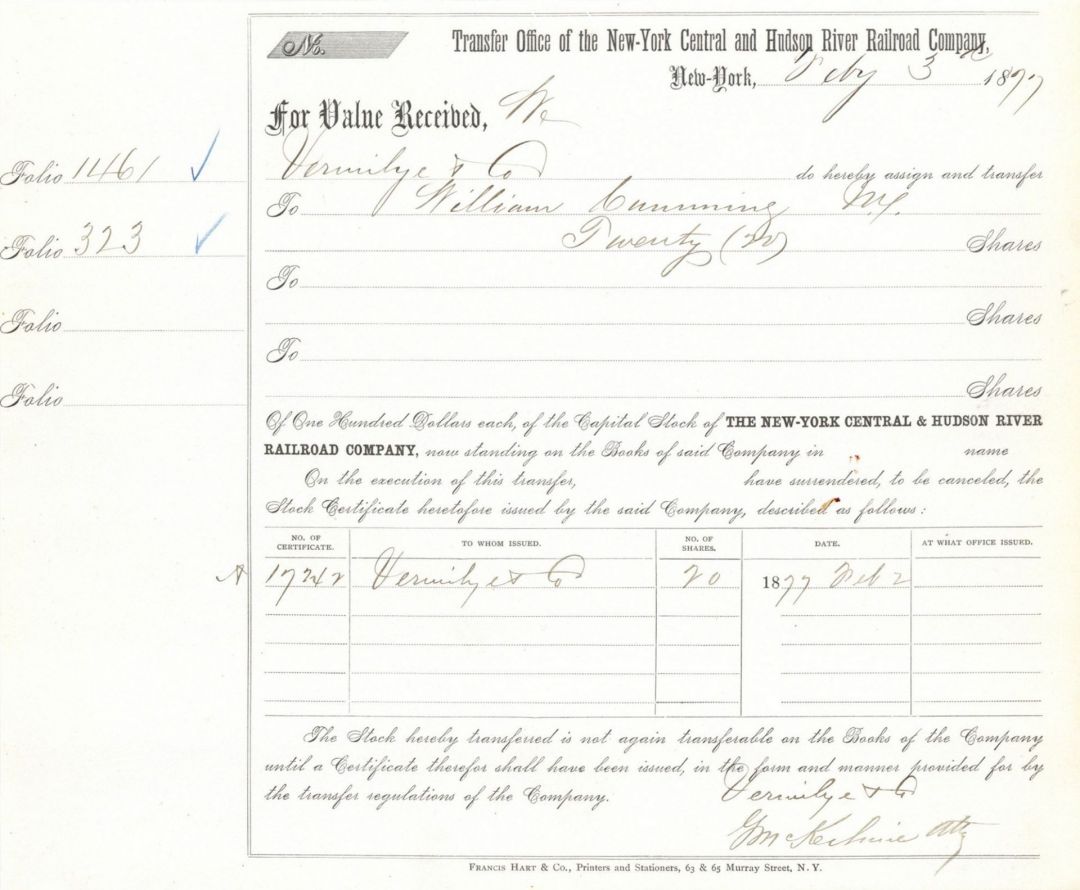 No.
Transfer Office of the New-York Central and Hudson River Railroad Company,
New-York, Feby 3d 1877
For Value Received, We
Folio 1461 ✓
Vermilye & Co do hereby assign and transfer
To William Cumming
Folio 323 ✓
Twenty (20) Shares
To
Folio
Shares
To
Folio
Shares
Of One Hundred Dollars each, of the Capital Stock of THE NEW-YORK CENTRAL & HUDSON RIVER
RAILROAD COMPANY, now standing on the Books of said Company in name
On the execution of this transfer, have surrendered, to be canceled, the
Stock Certificate heretofore issued by the said Company, described as follows:
NO. OF CERTIFICATE. TO WHOM ISSUED. NO. OF SHARES. DATE. AT WHAT OFFICE ISSUED.
A 17242 Vermilye & Co 20 1877 Feb 2
The Stock hereby transferred is not again transferable on the Books of the Company
until a Certificate therefor shall have been issued, in the form and manner provided for by
the transfer regulations of the Company.
Vermilye & Co
Atty
FRANCIS HART & CO., Printers and Stationers, 63 & 65 Murray Street, N. Y.